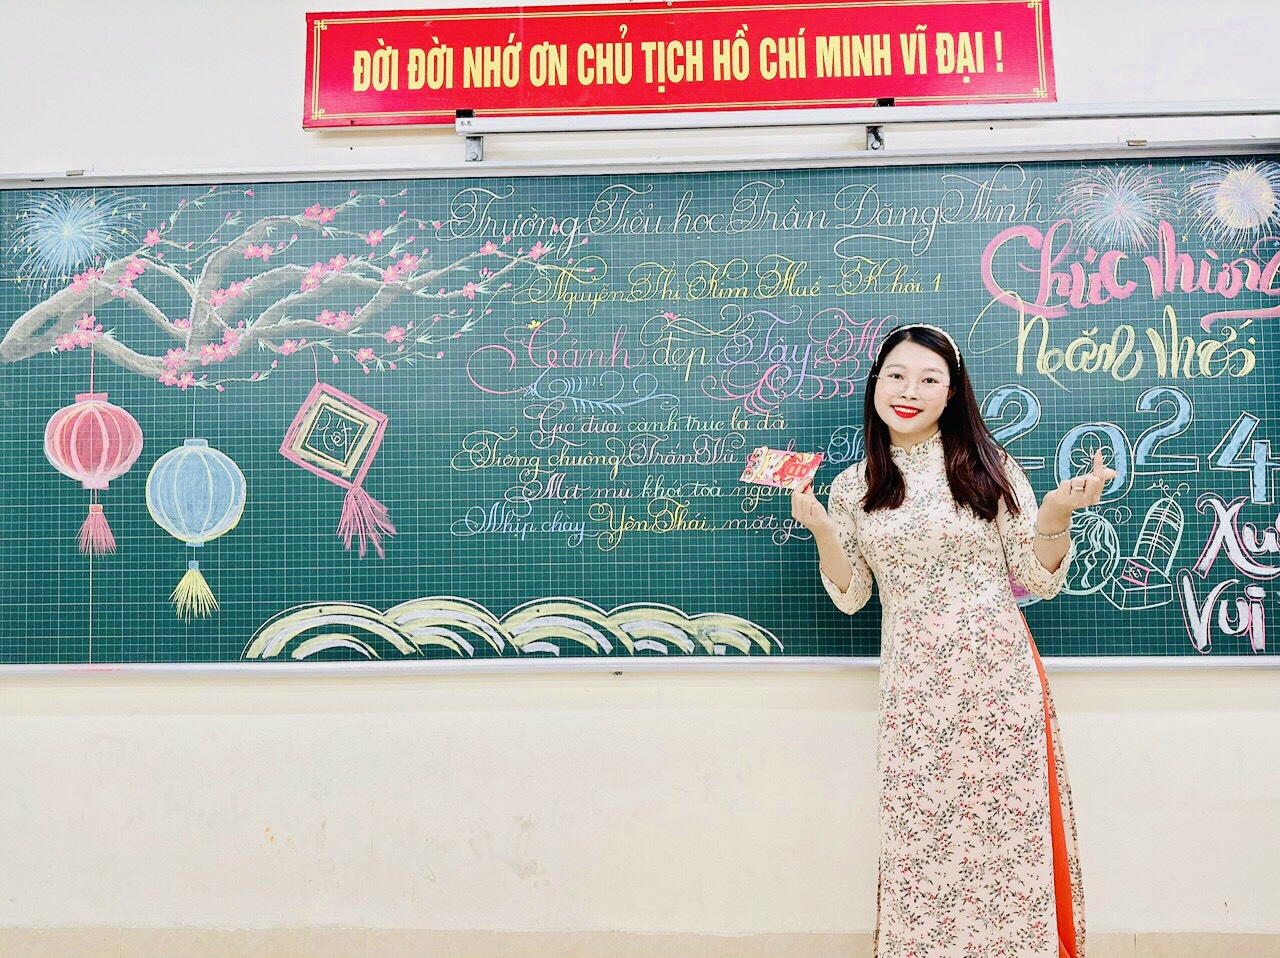 ĐỜI ĐỜI NHỚ ƠN CHỦ TỊCH HỒ CHÍ MINH VĨ ĐẠI !
Trường Tiểu học Trần Đăng Ninh
Nguyễn Thị Kim Huế - Khối 1
Cảnh đẹp Tây H
Gió đưa cành trúc la đà
Tiếng chuông Trấn Vũ
Mịt mù khói toả ngàn
Nhịp chày Yên Thái, mặt
Tết
Chúc mừng
Năm mới
2024
Xu
Vui